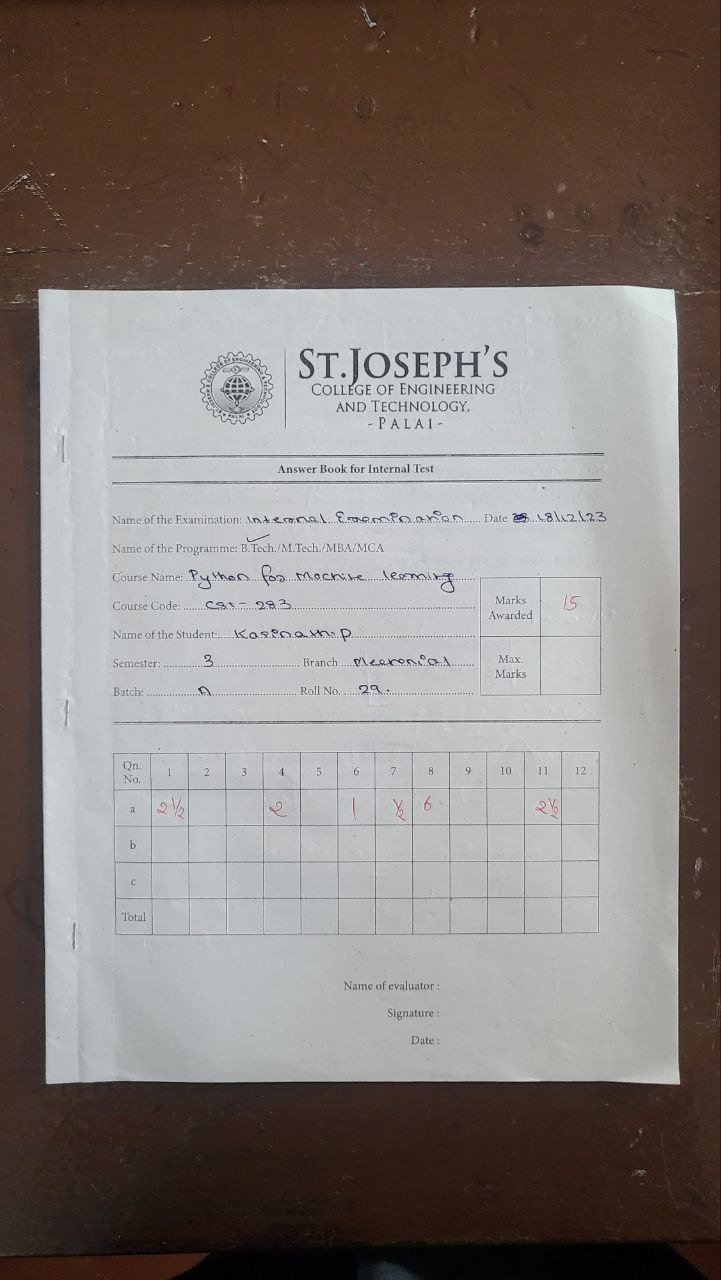 ST.JOSEPH'S
COLLEGE OF ENGINEERING
AND TECHNOLOGY,
- PALAI -
Answer Book for Internal Test
Name of the Examination: Internal Examination Date 18/12/23
Name of the Programme: B.Tech./M.Tech./MBA/MCA
Course Name: Python for Machine learning
Course Code: CST - 283
Marks Awarded 15
Name of the Student: Kasinath.P
Semester: 3 Branch
Max. Marks
Batch: A Roll No. 29.
Qn. No. 1 2 3 4 5 6 7 8 9 10 11 12
a 2 1/2 2 1 1/2 6 2 1/2
b
c
Total
Name of evaluator :
Signature :
Date :